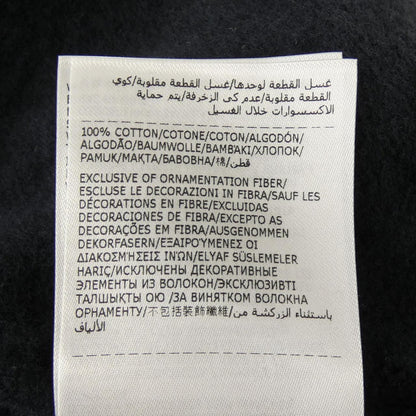 غسل القطعة لوحدها/غسل القطعة مقلوبة/كوي
القطعة مقلوبة/عدم كى الزخرفة/يتم حماية
الاكسسوارات خلال الغسيل
100% COTTON/COTONE/COTON/ALGODÓN/
ALGODÃO/BAUMWOLLE/BAMBAKI/ХЛОПОК/
PAMUK/МАҚТА/БАВОВНА/棉/قطن
EXCLUSIVE OF ORNAMENTATION FIBER/
ESCLUSE LE DECORAZIONI IN FIBRA/SAUF LES
DÉCORATIONS EN FIBRE/EXCLUIDAS
DECORACIONES DE FIBRA/EXCEPTO AS
DECORAÇÕES EM FIBRA/AUSGENOMMEN
DEKORFASERN/ΕΞΑΙΡΟΎΜΕΝΕΣ ΟΙ
ΔΙΑΚΟΣΜΉΣΕΙΣ ΙΝΏΝ/ELYAF SÜSLEMELER
HARIÇ/ИСКЛЮЧЕНЫ ДЕКОРАТИВНЫЕ
ЭЛЕМЕНТЫ ИЗ ВОЛОКОН/ЭКСКЛЮЗИВТІ
ТАЛШЫҚТЫ ОЮ /ЗА ВИНЯТКОМ ВОЛОКНА
ОРНАМЕНТУ/不包括裝飾纖維/باستثناء الزركشة من
الألياف